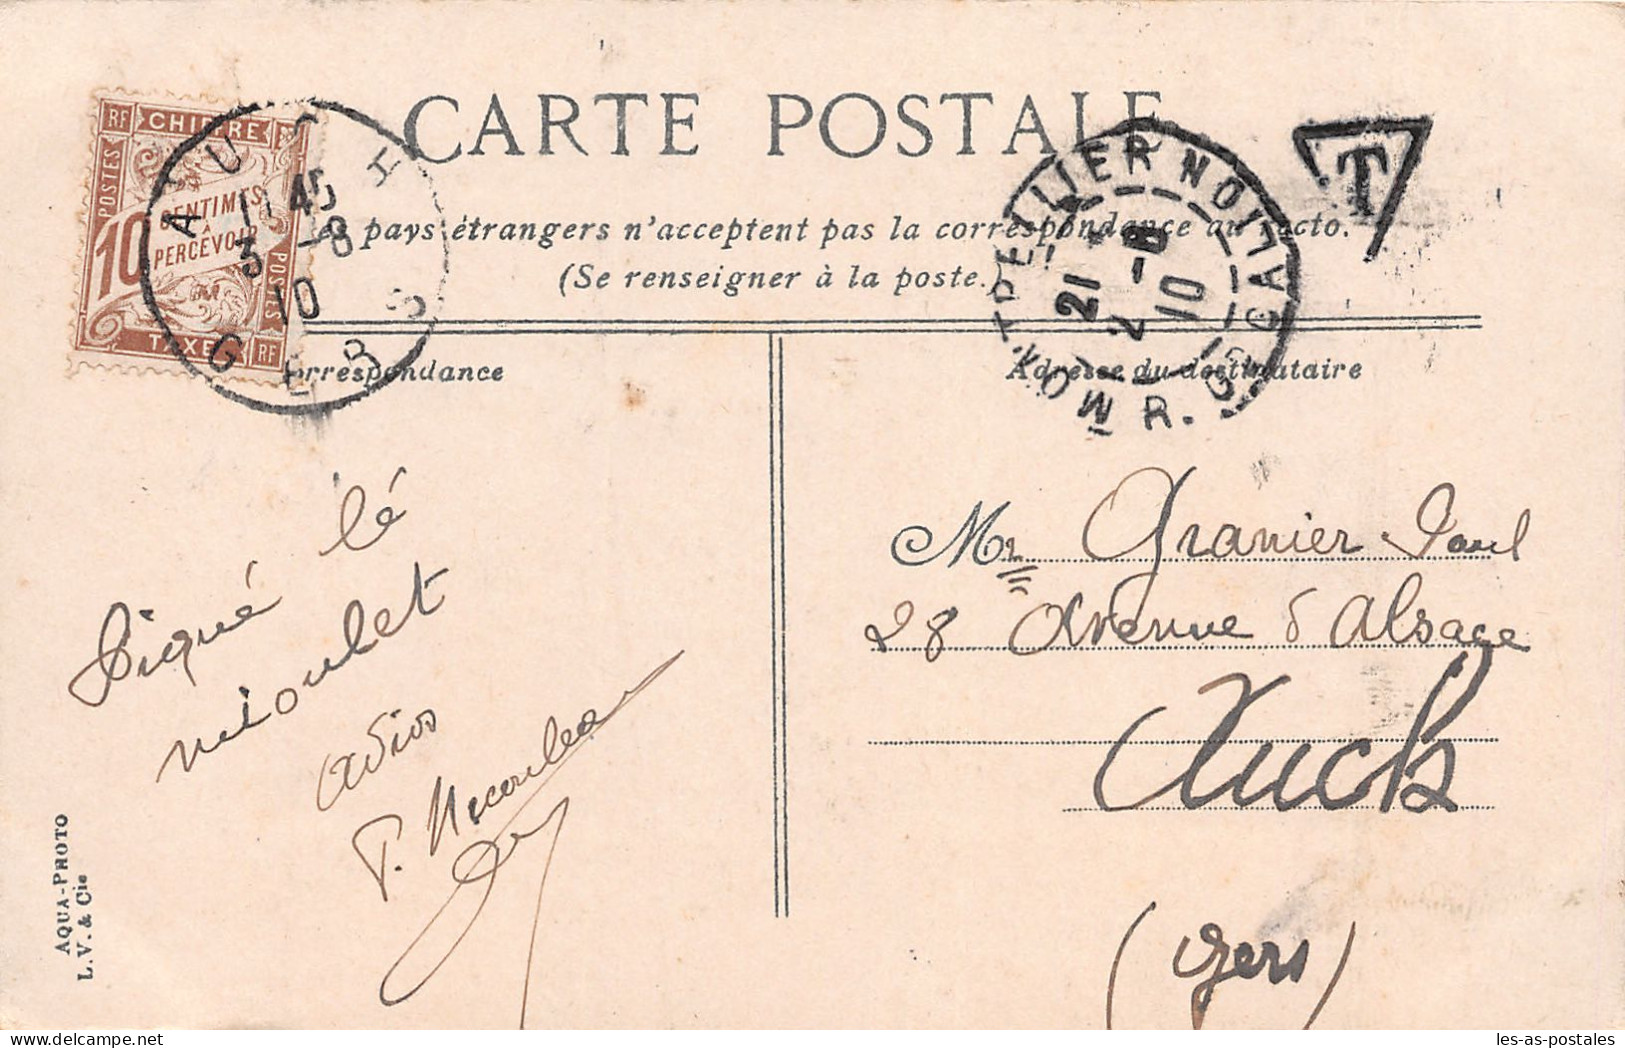 CARTE POSTALE
pays étrangers n'acceptent pas la correspondance au recto.
(Se renseigner à la poste.)
Correspondance
Adresse du destinataire
RF CHIFFRE
POSTES
10 CENTIMES
À
PERCEVOIR
POSTES
TAXE RF
AUCH
11 45
3 -8
10
GERS
MONTPELLIER
21
2 -8
10
R.
T
lé
mioulet
adios
Mr Granier Paul
28 Avenue d'Alsace
Auch
(Gers)
AQUA-PHOTO
L. V. & Cie
les-as-postales